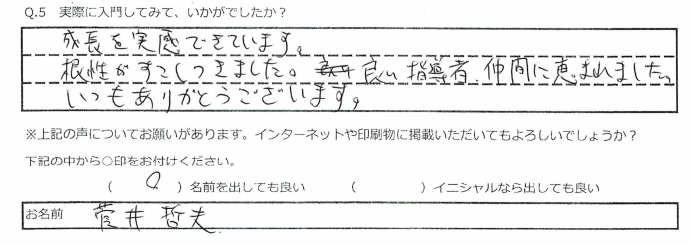 Q.5 実際に入門してみて、いかがでしたか？
成長を実感できています。
根性がすこしつきました。良い指導者、仲間に恵まれました。
いつもありがとうございます。
※上記の声についてお願いがあります。インターネットや印刷物に掲載いただいてもよろしいでしょうか？
下記の中から○印をお付けください。
（ ○ ）名前を出しても良い （ ）イニシャルなら出しても良い
お名前 菅井 哲夫